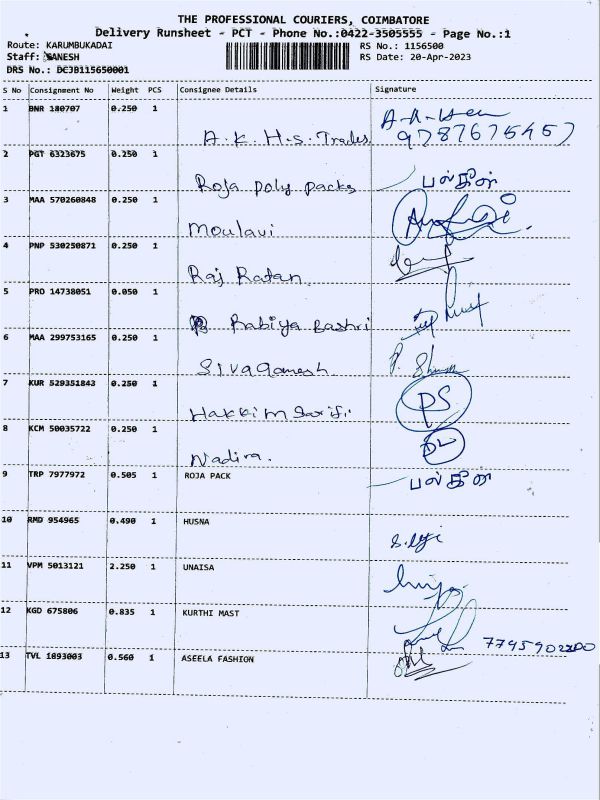 THE PROFESSIONAL COURIERS, COIMBATORE
Delivery Runsheet - PCT - Phone No.:0422-3505555 - Page No.:1
Route: KARUMBUKADAI RS No.: 1156500
Staff: GANESH RS Date: 20-Apr-2023
DRS No.: DCJB115650001
S No Consignment No Weight PCS Consignee Details Signature
1 BNR 180707 0.250 1 A.K.H.S. Trades
2 PGT 6323675 0.250 1 Roja poly packs
3 MAA 570260848 0.250 1 Moulavi
4 PNP 530250871 0.250 1 Raj Ratan
5 PRO 14738051 0.050 1 Rabiya Bashri
6 MAA 299753165 0.250 1 Sivaganesh
7 KUR 529351843 0.250 1 Hakkim Sarifi PS
8 KCM 50035722 0.250 1 Nadira.
9 TRP 7977972 0.505 1 ROJA PACK
10 RMD 954965 0.490 1 HUSNA
11 VPM 5013121 2.250 1 UNAISA
12 KGD 675806 0.835 1 KURTHI MAST
13 TVL 1893003 0.560 1 ASEELA FASHION